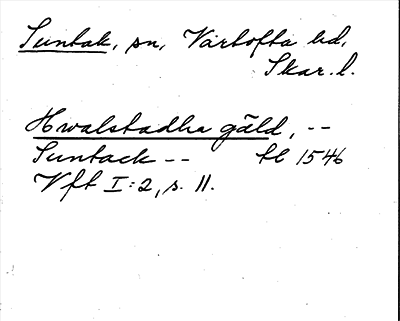 Suntak, sn, Vartofta hd,
Skar. l.
Hwalstadha gäld, --
Suntack -- tl 1546
Vft I:2, s. 11.